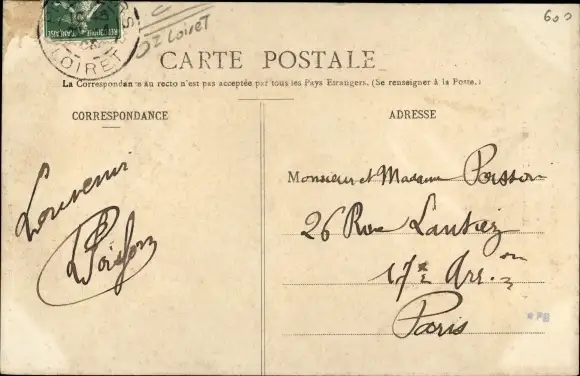 LOIRET
Loiret
600
CARTE POSTALE
La Correspondance au recto n'est pas acceptée par tous les Pays Etrangers. (Se renseigner à la Poste.)
CORRESPONDANCE
ADRESSE
Souvenir
Poisson
Monsieur et Madame Poisson
26 Rue Lantiez
17e Arr.on
Paris
PB